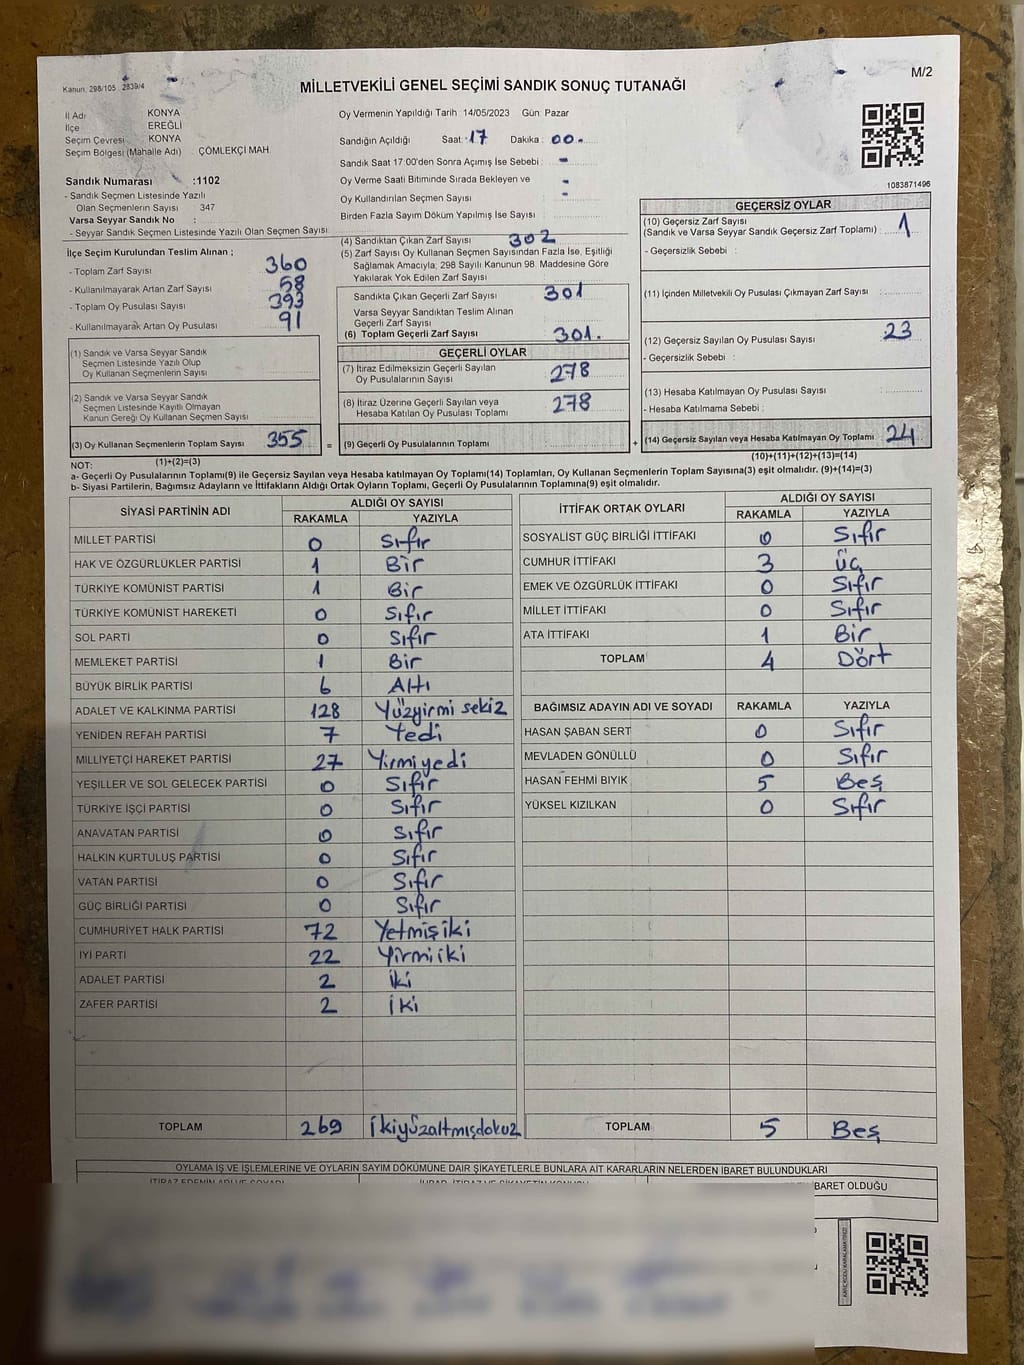 Kanun. 298/105 2839/4
MİLLETVEKİLİ GENEL SEÇİMİ SANDIK SONUÇ TUTANAĞI
M/2
İl Adı KONYA
İlçe EREĞLİ
Seçim Çevresi KONYA
Seçim Bölgesi (Mahalle Adı) : ÇÖMLEKÇİ MAH.
Sandık Numarası :1102
- Sandık Seçmen Listesinde Yazılı
Olan Seçmenlerin Sayısı 347
Varsa Seyyar Sandık No :
- Seyyar Sandık Seçmen Listesinde Yazılı Olan Seçmen Sayısı
Oy Vermenin Yapıldığı Tarih : 14/05/2023 Gün: Pazar
Sandığın Açıldığı Saat : 17 Dakika : 00.
Sandık Saat 17:00'den Sonra Açımış İse Sebebi : -
Oy Verme Saati Bitiminde Sırada Bekleyen ve -
Oy Kullandırılan Seçmen Sayısı -
Birden Fazla Sayım Döküm Yapılmış İse Sayısı
1083871496
İlçe Seçim Kurulundan Teslim Alınan ;
- Toplam Zarf Sayısı 360
- Kullanılmayarak Artan Zarf Sayısı 58
- Toplam Oy Pusulası Sayısı 393
- Kullanılmayarak Artan Oy Pusulası 91
(1) Sandık ve Varsa Seyyar Sandık
Seçmen Listesinde Yazılı Olup
Oy Kullanan Seçmenlerin Sayısı
(2) Sandık ve Varsa Seyyar Sandık
Seçmen Listesinde Kayıtlı Olmayan
Kanun Gereği Oy Kullanan Seçmen Sayısı
(3) Oy Kullanan Seçmenlerin Toplam Sayısı 355
(1)+(2)=(3)
(4) Sandıktan Çıkan Zarf Sayısı 302
(5) Zarf Sayısı Oy Kullanan Seçmen Sayısından Fazla İse, Eşitliği
Sağlamak Amacıyla, 298 Sayılı Kanunun 98. Maddesine Göre
Yakılarak Yok Edilen Zarf Sayısı
Sandıkta Çıkan Geçerli Zarf Sayısı 301
Varsa Seyyar Sandıktan Teslim Alınan
Geçerli Zarf Sayısı
(6) Toplam Geçerli Zarf Sayısı 301.
GEÇERLİ OYLAR
(7) İtiraz Edilmeksizin Geçerli Sayılan
Oy Pusulalarının Sayısı 278
(8) İtiraz Üzerine Geçerli Sayılan veya
Hesaba Katılan Oy Pusulası Toplamı 278
= (9) Geçerli Oy Pusulalarının Toplamı +
GEÇERSİZ OYLAR
(10) Geçersiz Zarf Sayısı
(Sandık ve Varsa Seyyar Sandık Geçersiz Zarf Toplamı) 1
- Geçersizlik Sebebi :
(11) İçinden Milletvekili Oy Pusulası Çıkmayan Zarf Sayısı
(12) Geçersiz Sayılan Oy Pusulası Sayısı 23
- Geçersizlik Sebebi :
(13) Hesaba Katılmayan Oy Pusulası Sayısı
- Hesaba Katılmama Sebebi :
(14) Geçersiz Sayılan veya Hesaba Katılmayan Oy Toplamı 24
(10)+(11)+(12)+(13)=(14)
NOT:
a- Geçerli Oy Pusulalarının Toplamı(9) ile Geçersiz Sayılan veya Hesaba katılmayan Oy Toplamı(14) Toplamları, Oy Kullanan Seçmenlerin Toplam Sayısına(3) eşit olmalıdır. (9)+(14)=(3)
b- Siyasi Partilerin, Bağımsız Adayların ve İttifakların Aldığı Ortak Oyların Toplamı, Geçerli Oy Pusulalarının Toplamına(9) eşit olmalıdır.
SİYASİ PARTİNİN ADI ALDIĞI OY SAYISI
RAKAMLA YAZIYLA
MİLLET PARTİSİ 0 Sıfır
HAK VE ÖZGÜRLÜKLER PARTİSİ 1 Bir
TÜRKİYE KOMÜNİST PARTİSİ 1 Bir
TÜRKİYE KOMÜNİST HAREKETİ 0 Sıfır
SOL PARTİ 0 Sıfır
MEMLEKET PARTİSİ 1 Bir
BÜYÜK BİRLİK PARTİSİ 6 Altı
ADALET VE KALKINMA PARTİSİ 128 Yüzyirmi sekiz
YENİDEN REFAH PARTİSİ 7 Yedi
MİLLİYETÇİ HAREKET PARTİSİ 27 Yirmiyedi
YEŞİLLER VE SOL GELECEK PARTİSİ 0 Sıfır
TÜRKİYE İŞÇİ PARTİSİ 0 Sıfır
ANAVATAN PARTİSİ 0 Sıfır
HALKIN KURTULUŞ PARTİSİ 0 Sıfır
VATAN PARTİSİ 0 Sıfır
GÜÇ BİRLİĞİ PARTİSİ 0 Sıfır
CUMHURİYET HALK PARTİSİ 72 Yetmişiki
İYİ PARTİ 22 Yirmiiki
ADALET PARTİSİ 2 İki
ZAFER PARTİSİ 2 İki
TOPLAM 269 İkiyüzaltmışdokuz
İTTİFAK ORTAK OYLARI ALDIĞI OY SAYISI
RAKAMLA YAZIYLA
SOSYALİST GÜÇ BİRLİĞİ İTTİFAKI 0 Sıfır
CUMHUR İTTİFAKI 3 Üç
EMEK VE ÖZGÜRLÜK İTTİFAKI 0 Sıfır
MİLLET İTTİFAKI 0 Sıfır
ATA İTTİFAKI 1 Bir
TOPLAM 4 Dört
BAĞIMSIZ ADAYIN ADI VE SOYADI RAKAMLA YAZIYLA
HASAN ŞABAN SERT 0 Sıfır
MEVLADEN GÖNÜLLÜ 0 Sıfır
HASAN FEHMİ BIYIK 5 Beş
YÜKSEL KIZILKAN 0 Sıfır
TOPLAM 5 Beş
OYLAMA İŞ VE İŞLEMLERİNE VE OYLARIN SAYIM DÖKÜMÜNE DAİR ŞİKAYETLERLE BUNLARA AİT KARARLARIN NELERDEN İBARET BULUNDUKLARI
BARET OLDUĞU